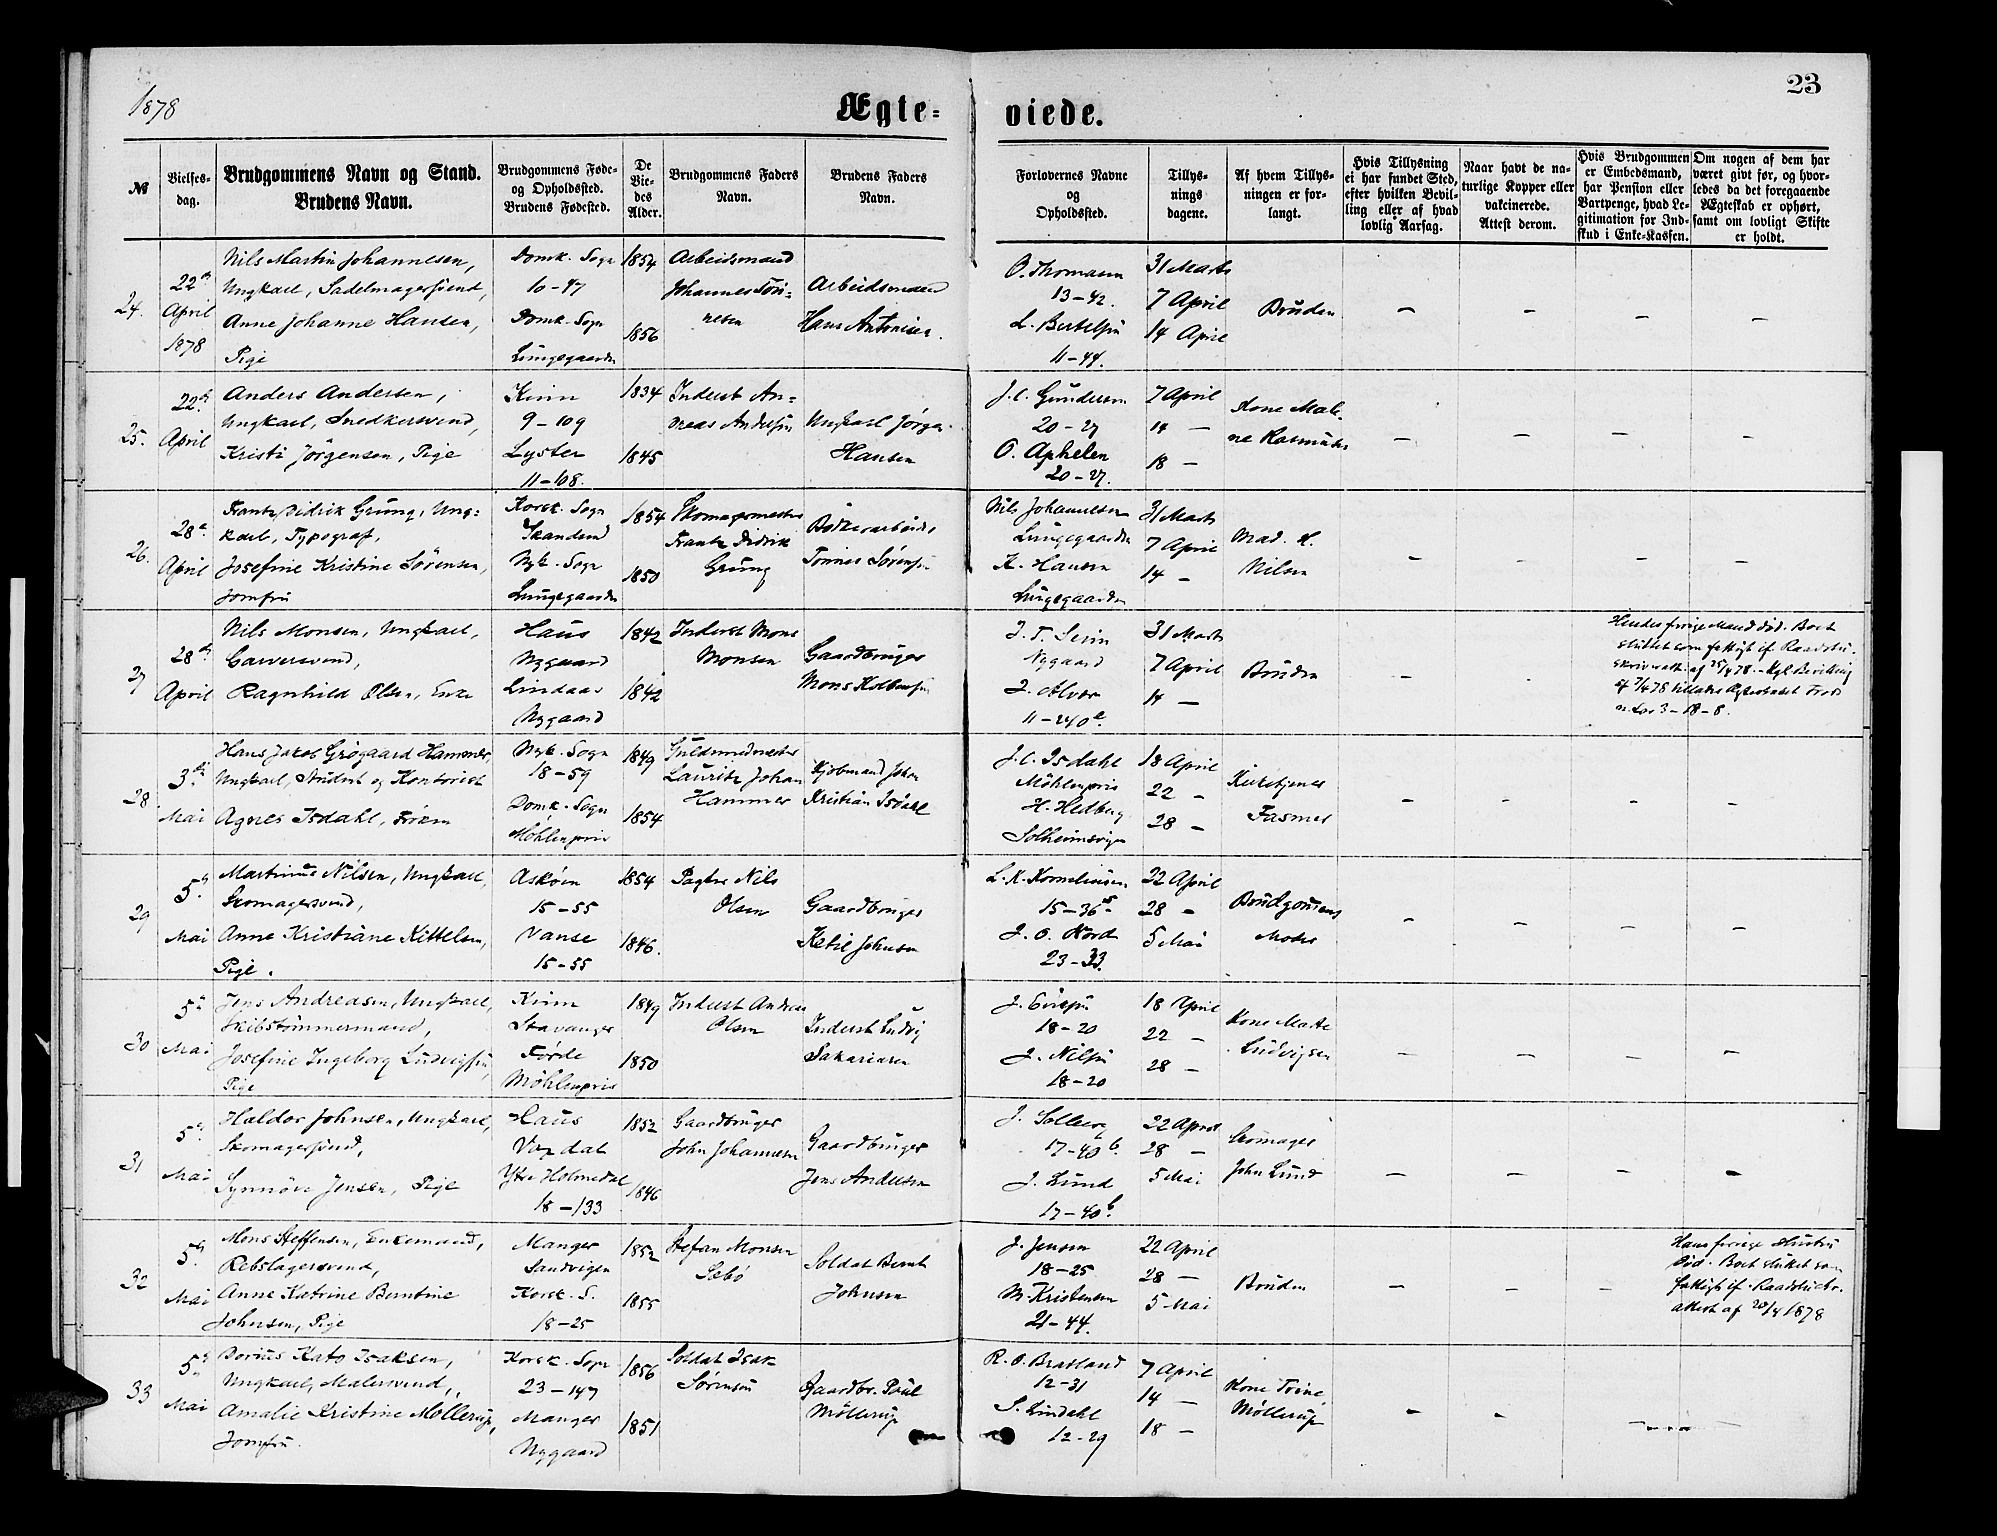 1878
Ægte-
viede.
23
№
Vielses-
dag.
Brudgommens Navn og Stand.
Brudens Navn.
Brudgommens Føde-
og Opholdssted.
Brudens Fødested.
De
Vie-
des
Alder.
Brudgommens Faders
Navn.
Brudens Faders
Navn.
Forlovernes Navne
og
Opholdssted.
Tillys-
nings
dagene.
Af hvem Tillys-
ningen er for-
langt.
Hvis Tillysning
ei har fundet Sted,
efter hvilken Bevil-
ling eller af hvad
lovlig Aarsag.
Naar havt de na-
turlige Kopper eller
vakcinerede.
Attest derom.
Hvis Brudgommen
er Embedsmand,
har Pension eller
Vartpenge, hvad Le-
gitimation for Ind-
skud i Enke-Kassen.
Om nogen af dem har
været givt før, og hvor-
ledes da det foregaaende
Ægteskab er ophørt,
samt om lovligt Skifte
er holdt.
24.
22de
April
1878
Nils Martin Johannesen,
Ungkarl, Sadelmagersvend,
Anne Johanne Hansen,
Pige
Domk. Sogn
10-47
Domk. Sogn
Lungegaarden
1854
1856
Arbeidsmand
Johannes Tön-
nesen
Arbeidsmand
Hans Antonisen.
O. Thomassen
13-42.
L. Bertelsen
11-44.
31 Marts
7 April
14 April
Bruden
25.
22de
April
Anders Andersen,
Ungkarl, Snedkersvend,
Kristi Jörgensen, Pige
Kinn
9-109
Lyster
11-108.
1834
1845
Inderst An-
dreas Andersen
Ungkarl Jörgen
Hansen
J. C. Gundersen
20-27
O. Aphelen
20-27.
7 April
14 -
18 -
Kone Male-
ne Rasmusen
26.
28de
April
Frantz Didrik Grung, Ung-
karl, Typograf,
Josefine Kristine Sörensen,
Jomfru
Korsk. Sogn
Skanden
Nyk. Sogn
Lungegaarden
1854
1850
Skomagermester
Frantz Didrik
Grung
Bödkerarbeider
Tönnes Sörensen
Nils Johannessen
Lungegaarden
K. Hansen
Lungegaarden
31 Marts
7 April
14 -
Mad. K.
Nilsen
27
28de
April
Nils Monsen, Ungkarl,
Garversvend,
Ragnhild Olsen, Enke
Haus
Nygaard
Lindaas
Nygaard
1842
1842
Inderst Mons
Monsen
Gaardbruger
Mons Kolbensen
Nygaard
J. Alver
11-240
31 Marts
7 April
14 -
Bruden
Hendes forrige Mand död. Boet
sluttet som fattigt if. Raadstu-
skriveratt. af 25/4 78. Kgl. Bevilling
28
3die
Mai
Hans Jacob Grögaard Hammer,
Ungkarl, Student og Kontorist
Agnes Isdahl, Fröken
Nyk. Sogn
18-59
Domk. Sogn
Möhlenpris
1849
1854
Guldsmedmester
Lauritz Johan
Hammer
Kjöbmand Johan
Kristian Isdahl
J. C. Isdahl
Möhlenpris
H. Hedberg
Solheimsvigen
18 April
22 -
28 -
Kirketjener
Fasmer
29
5te
Mai
Martinus Nilsen, Ungkarl,
Skomagersvend,
Anne Kristiane Kittelsen,
Pige.
Asköen
15-55
Vanse
15-55
1854
1846.
Pagter Nils
Olsen
Gaardbruger
Ketil Johnsen
L. K. Korneliusen
15-36
J. O. Nord
23-33.
22 April
28 -
5 Mai
Brudgommens
Moder
30
5te
Mai
Jens Andreasen, Ungkarl,
Skibstömmermand,
Josefine Ingeborg Ludvigsen,
Pige
Kinn
Stavanger
Förde
Möhlenpris
1849
1850
Inderst Andreas
Olsen
Inderst Ludvig
Sakariasen
18-20
J. Nilsen
18-20
18 April
22 -
28 -
Kone Marte
Ludvigsen
31
5te
Mai
Haldor Johnsen, Ungkarl,
Skomagersvend,
Synnöve Jensen, Pige
Haus
Vaxdal
Ytre Holmedal
18-133
1852
1846
Gaardbruger
John Johannesen
Gaardbruger
Jens Andersen
J. Solberg
17-40b.
J. Lund
17-40b.
22 April
28 -
5 Mai
Skomager
John Lund
32
5te
Mai
Mons Steffensen, Enkemand,
Rebslagersvend,
Anne Katrine Berntine
Johnsen, Pige
Manger
Sandvigen
Korsk. S.
18-25
1852
1855
Stefan Monsen
Sebö
Soldat Bernt
Johnsen
J. Jensen
18-25
M. Kristensen
21-44.
22 April
28 -
5 Mai
Bruden
Hans forrige Hustru
död. Boet sluttet som
fattigt if. Raadstuskr.
attest af 20/4 1878
33
5te
Mai
Dorius Kato Isaksen,
Ungkarl, Malersvend,
Amalie Kristine Möllerup,
Jomfru.
Korsk. Sogn
23-147
Manger
Nygaard
1856
1851
Soldat Isak
Sörensen
Gaardbr. Poul
Möllerup
R. O. Bratland
12-31
S. Lindahl
12-29
7 April
14 -
18 -
Kone Trine
Möllerup